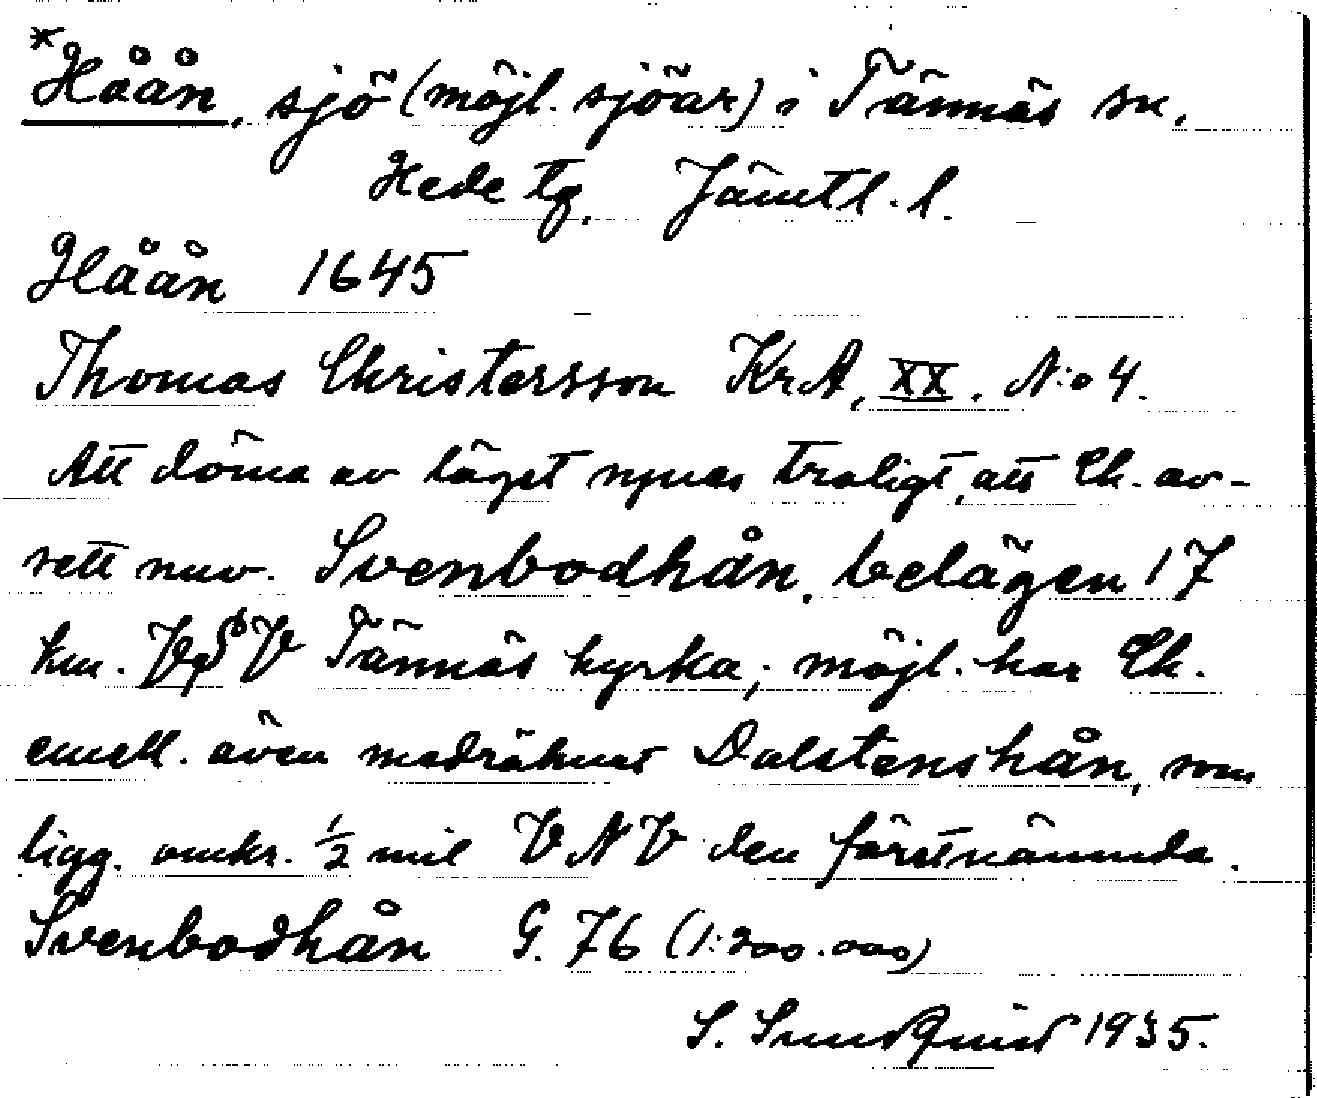 *Håån, sjö (möjl. sjöar) i Tännäs sn,
Hede tg. Jämtl. l.
Håån 1645
Thomas Christersson KrA, XX. N:o 4.
Att döma av läget synes troligt, att Ch. av-
sett nuv. Svenbodhån, belägen 17
km. V Tännäs kyrka; möjl. har Ch.
emell. även medräknat Dalstenshån, som
ligg. omkr. ½ mil VNV den förstnämnda.
Svenbodhån G. 76 (1:200.000)
S. Sundquist 1935.